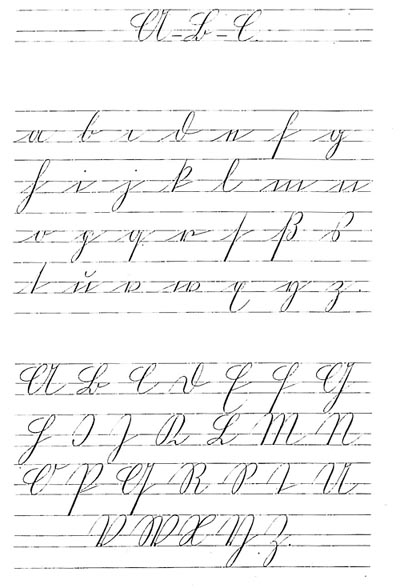 A-B-C.
a b c d e f g
h i j k l m n
o p q r s ß s
t u v w x y z.
A B C D E F G
H I J K L M N
O P Q R S T U
V W X Y Z.